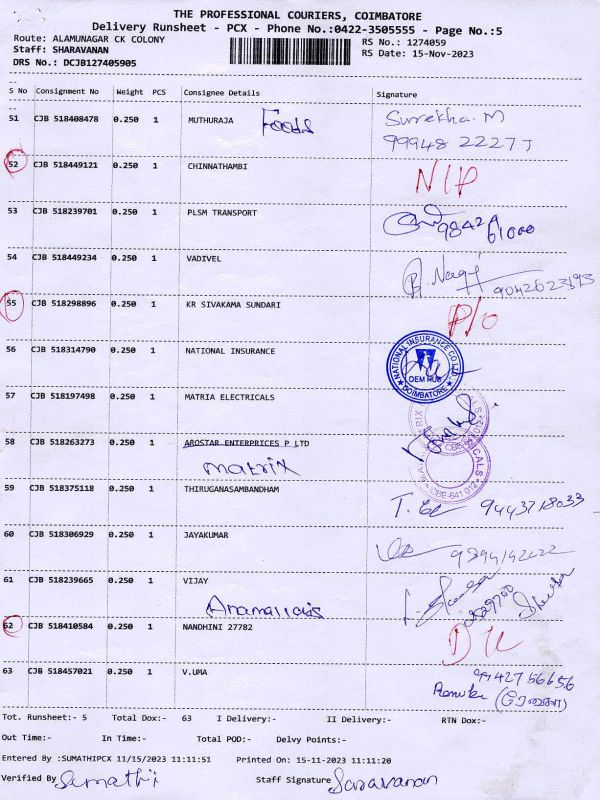 THE PROFESSIONAL COURIERS, COIMBATORE
Delivery Runsheet - PCX - Phone No.:0422-3505555 - Page No.:5
Route: ALAMUNAGAR CK COLONY RS No.: 1274059
Staff: SHARAVANAN RS Date: 15-Nov-2023
DRS No.: DCJB127405905
S No Consignment No Weight PCS Consignee Details Signature
51 CJB 518408478 0.250 1 MUTHURAJA Foods Surekha. M
99948 22277
52 CJB 518449121 0.250 1 CHINNATHAMBI N/P
53 CJB 518239701 0.250 1 PLSM TRANSPORT 98424 61000
54 CJB 518449234 0.250 1 VADIVEL 9042623193
55 CJB 518298896 0.250 1 KR SIVAKAMA SUNDARI P/O
56 CJB 518314790 0.250 1 NATIONAL INSURANCE NATIONAL INSURANCE CO. LTD. OEM HUB COIMBATORE
57 CJB 518197498 0.250 1 MATRIA ELECTRICALS
58 CJB 518263273 0.250 1 AROSTAR ENTERPRICES P LTD
matrix CBE-641 012
59 CJB 518375118 0.250 1 THIRUGANASAMBANDHAM 9443718033
60 CJB 518306929 0.250 1 JAYAKUMAR
61 CJB 518239665 0.250 1 VIJAY
62 CJB 518410584 0.250 1 NANDHINI 27782 D/L
63 CJB 518457021 0.250 1 V.UMA 9442756656
Renuka (ரேணுகா)
Tot. Runsheet:- 5 Total Dox:- 63 I Delivery:- II Delivery:- RTN Dox:-
Out Time:- In Time:- Total POD:- Delvy Points:-
Entered By :SUMATHIPCX 11/15/2023 11:11:51 Printed On: 15-11-2023 11:11:20
Verified By Sumathi Staff Signature Saravanan